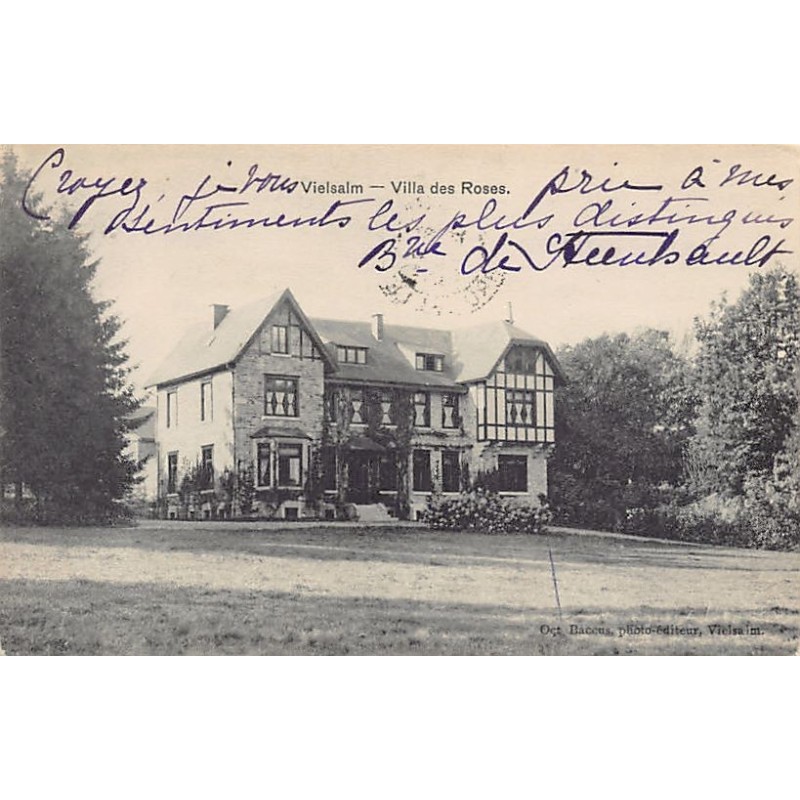 Croyez, je vous prie à mes
Vielsalm — Villa des Roses.
Sentiments les plus distingués
Bne de
Oct Baccus, photo-éditeur, Vielsalm.